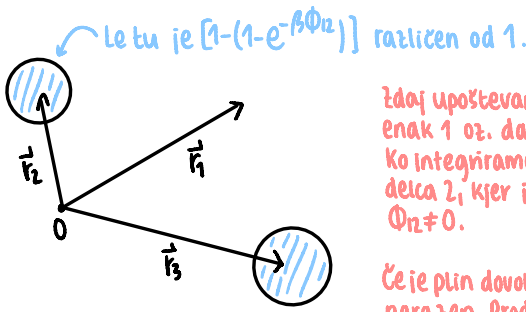 Le tu je [1-(1-e^{-βΦ₁₂})] različen od 1.
Zdaj upošteva
enak 1 oz. da
r⃗₂
r⃗₁
Ko integriram
delca 2, kjer j
0
Φ₁₂≠0.
r⃗₃
Če je plin dovo